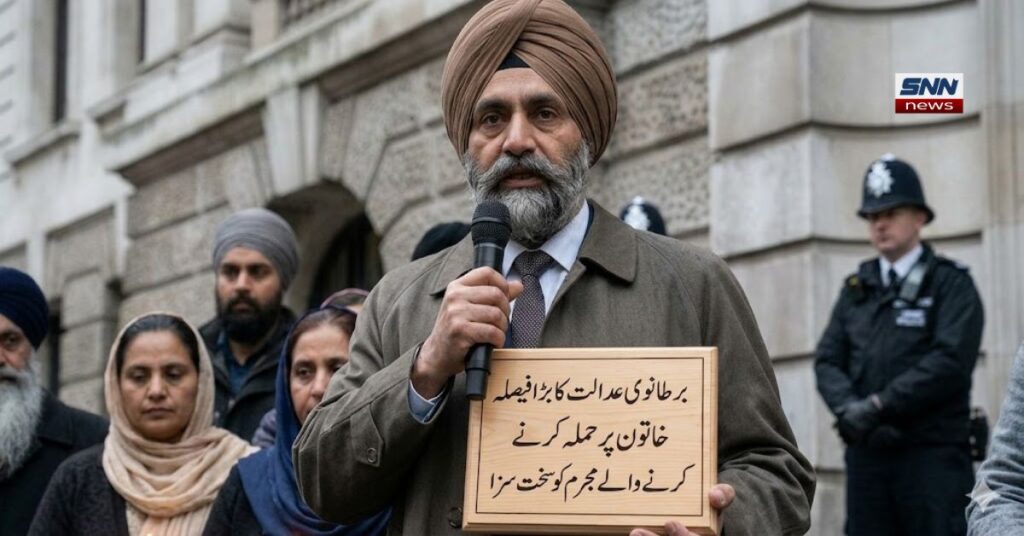 SNN
news
برطانوی عدالت کا بڑا فیصلہ
خاتون پر حملہ کرنے
کرنے والے مجرم کو سخت سزا